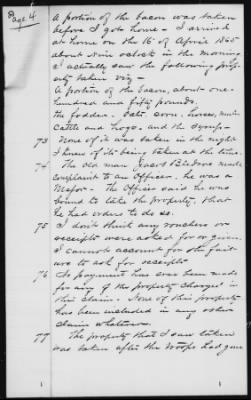 Page 4
A portion of the bacon was taken
before I got home - I arrived
at home on the 16 of April 1865
about nine oclock in the morning
I actually saw the following prop-
erty taken viz -
A portion of the bacon, about one
hundred and fifty pounds,
the fodder. Oats, corn, horse, mule
Cattle and hogs, and the syrup -
73 None of it was taken in the night
I knew of its being taken at the time
74 The old man made
complaint to an Officer. he was a
Major. The Officer said he was
bound to take the property, that
he had orders to do so.
75 I dont think any vouchers or
receipts were asked for or given
I cannot account for the fail
ure to ask for receipts
76 No payment has ever been made
for any of the property charged in
this claim. None of this property
has been included in any other
claim whatever.
77 The property that I saw taken
was taken after the troops had gone